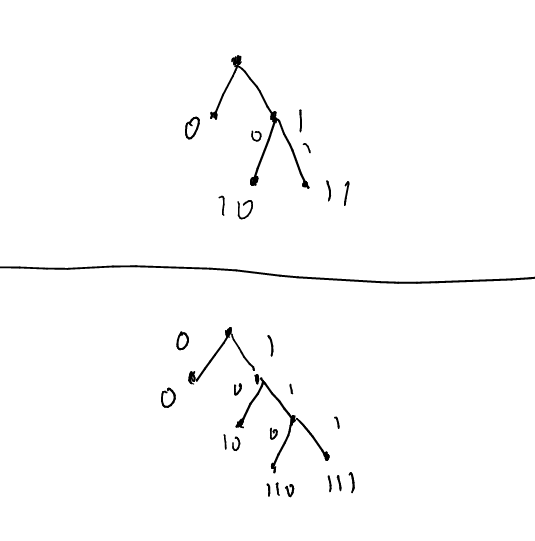 0 0 1
1
10 11
0 1
0 0 1
10 0 1
110 111